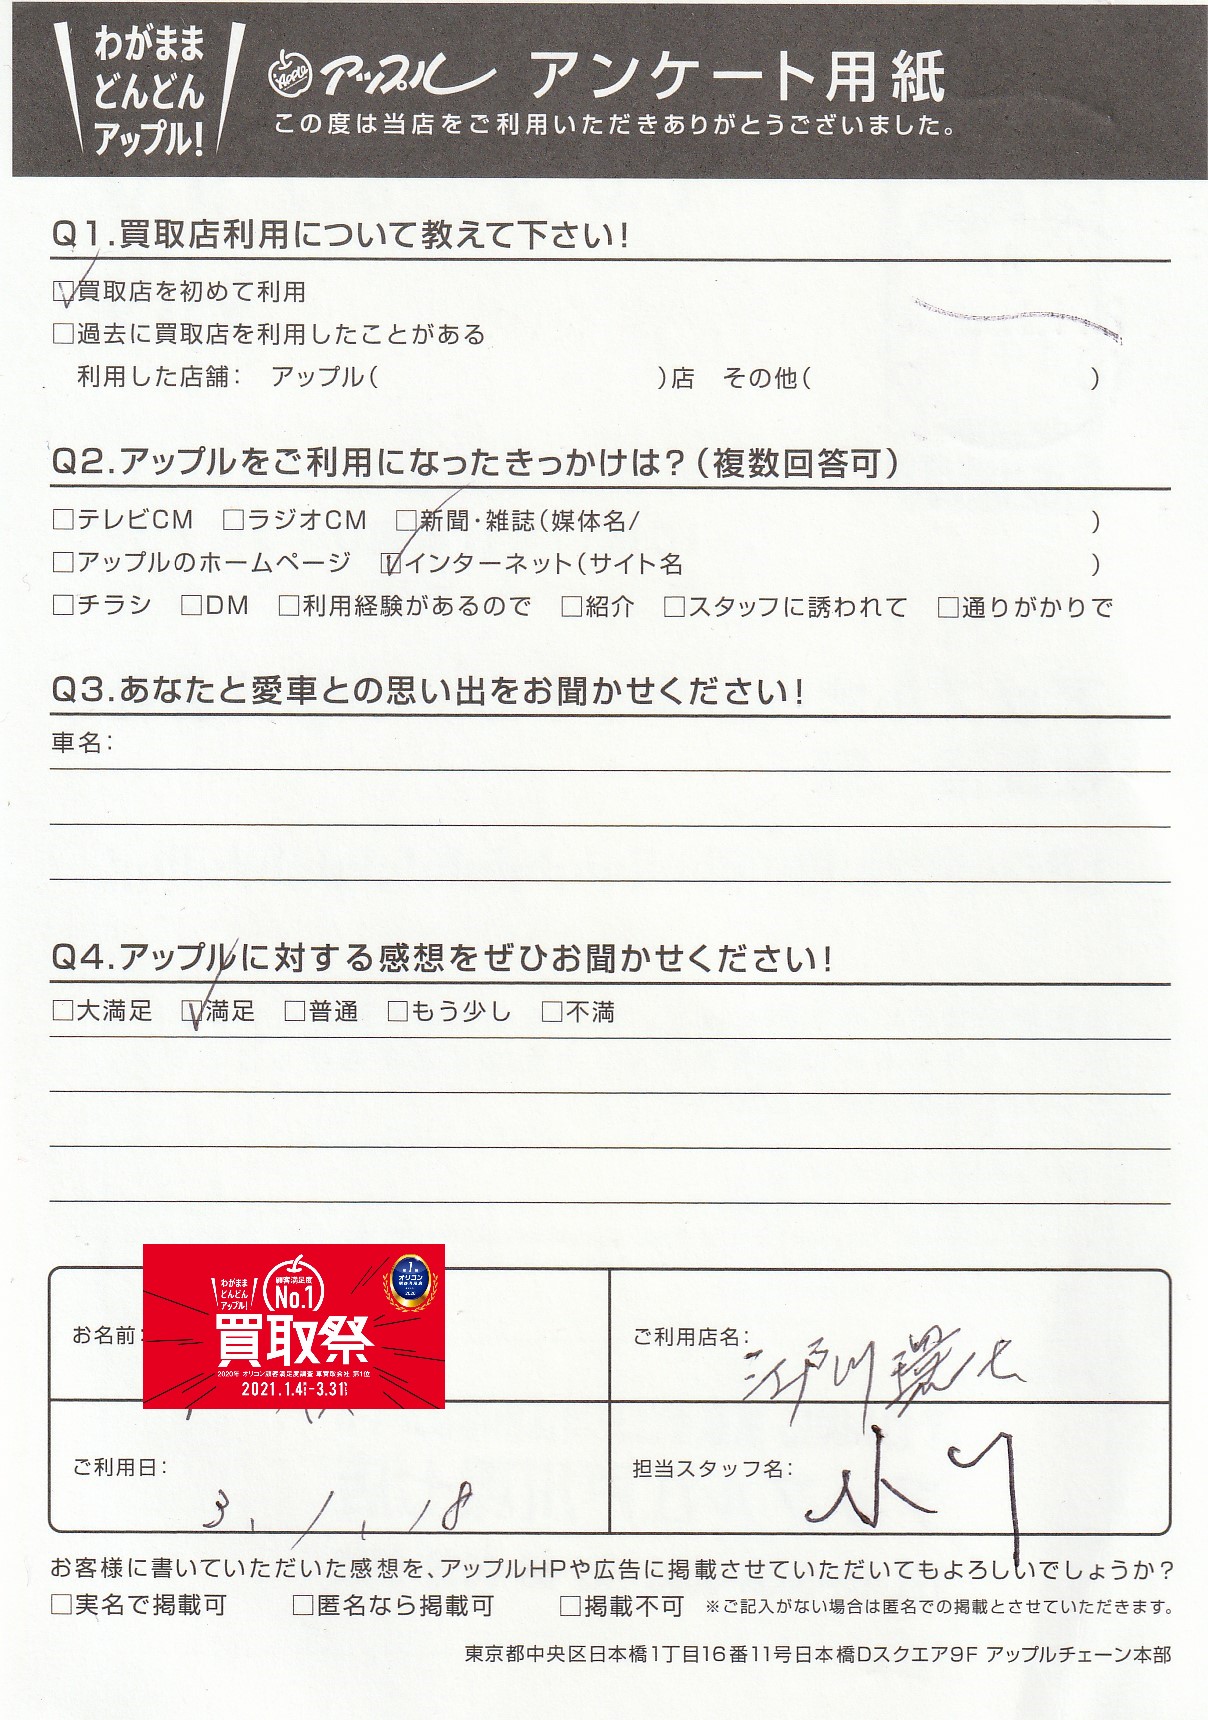 わがまま
どんどん
アップル!
Apple アップル アンケート用紙
この度は当店をご利用いただきありがとうございました。
Q1.買取店利用について教えて下さい!
☑買取店を初めて利用
□過去に買取店を利用したことがある
利用した店舗: アップル( )店 その他( )
Q2.アップルをご利用になったきっかけは?(複数回答可)
□テレビCM □ラジオCM □新聞・雑誌(媒体名/ )
□アップルのホームページ ☑インターネット(サイト名 )
□チラシ □DM □利用経験があるので □紹介 □スタッフに誘われて □通りがかりで
Q3.あなたと愛車との思い出をお聞かせください!
車名:
Q4.アップルに対する感想をぜひお聞かせください!
□大満足 ☑満足 □普通 □もう少し □不満
お名前:
わがまま
どんどん
アップル!
顧客満足度
No.1
買取祭
2020年 オリコン顧客満足度調査 車買取会社 第1位
2021.1.4-3.31
オリコン
ご利用店名: 江戸川環七
ご利用日: 3. 1. 18
担当スタッフ名: 小川
お客様に書いていただいた感想を、アップルHPや広告に掲載させていただいてもよろしいでしょうか?
□実名で掲載可 □匿名なら掲載可 □掲載不可 ※ご記入がない場合は匿名での掲載とさせていただきます。
東京都中央区日本橋1丁目16番11号日本橋Dスクエア9F アップルチェーン本部